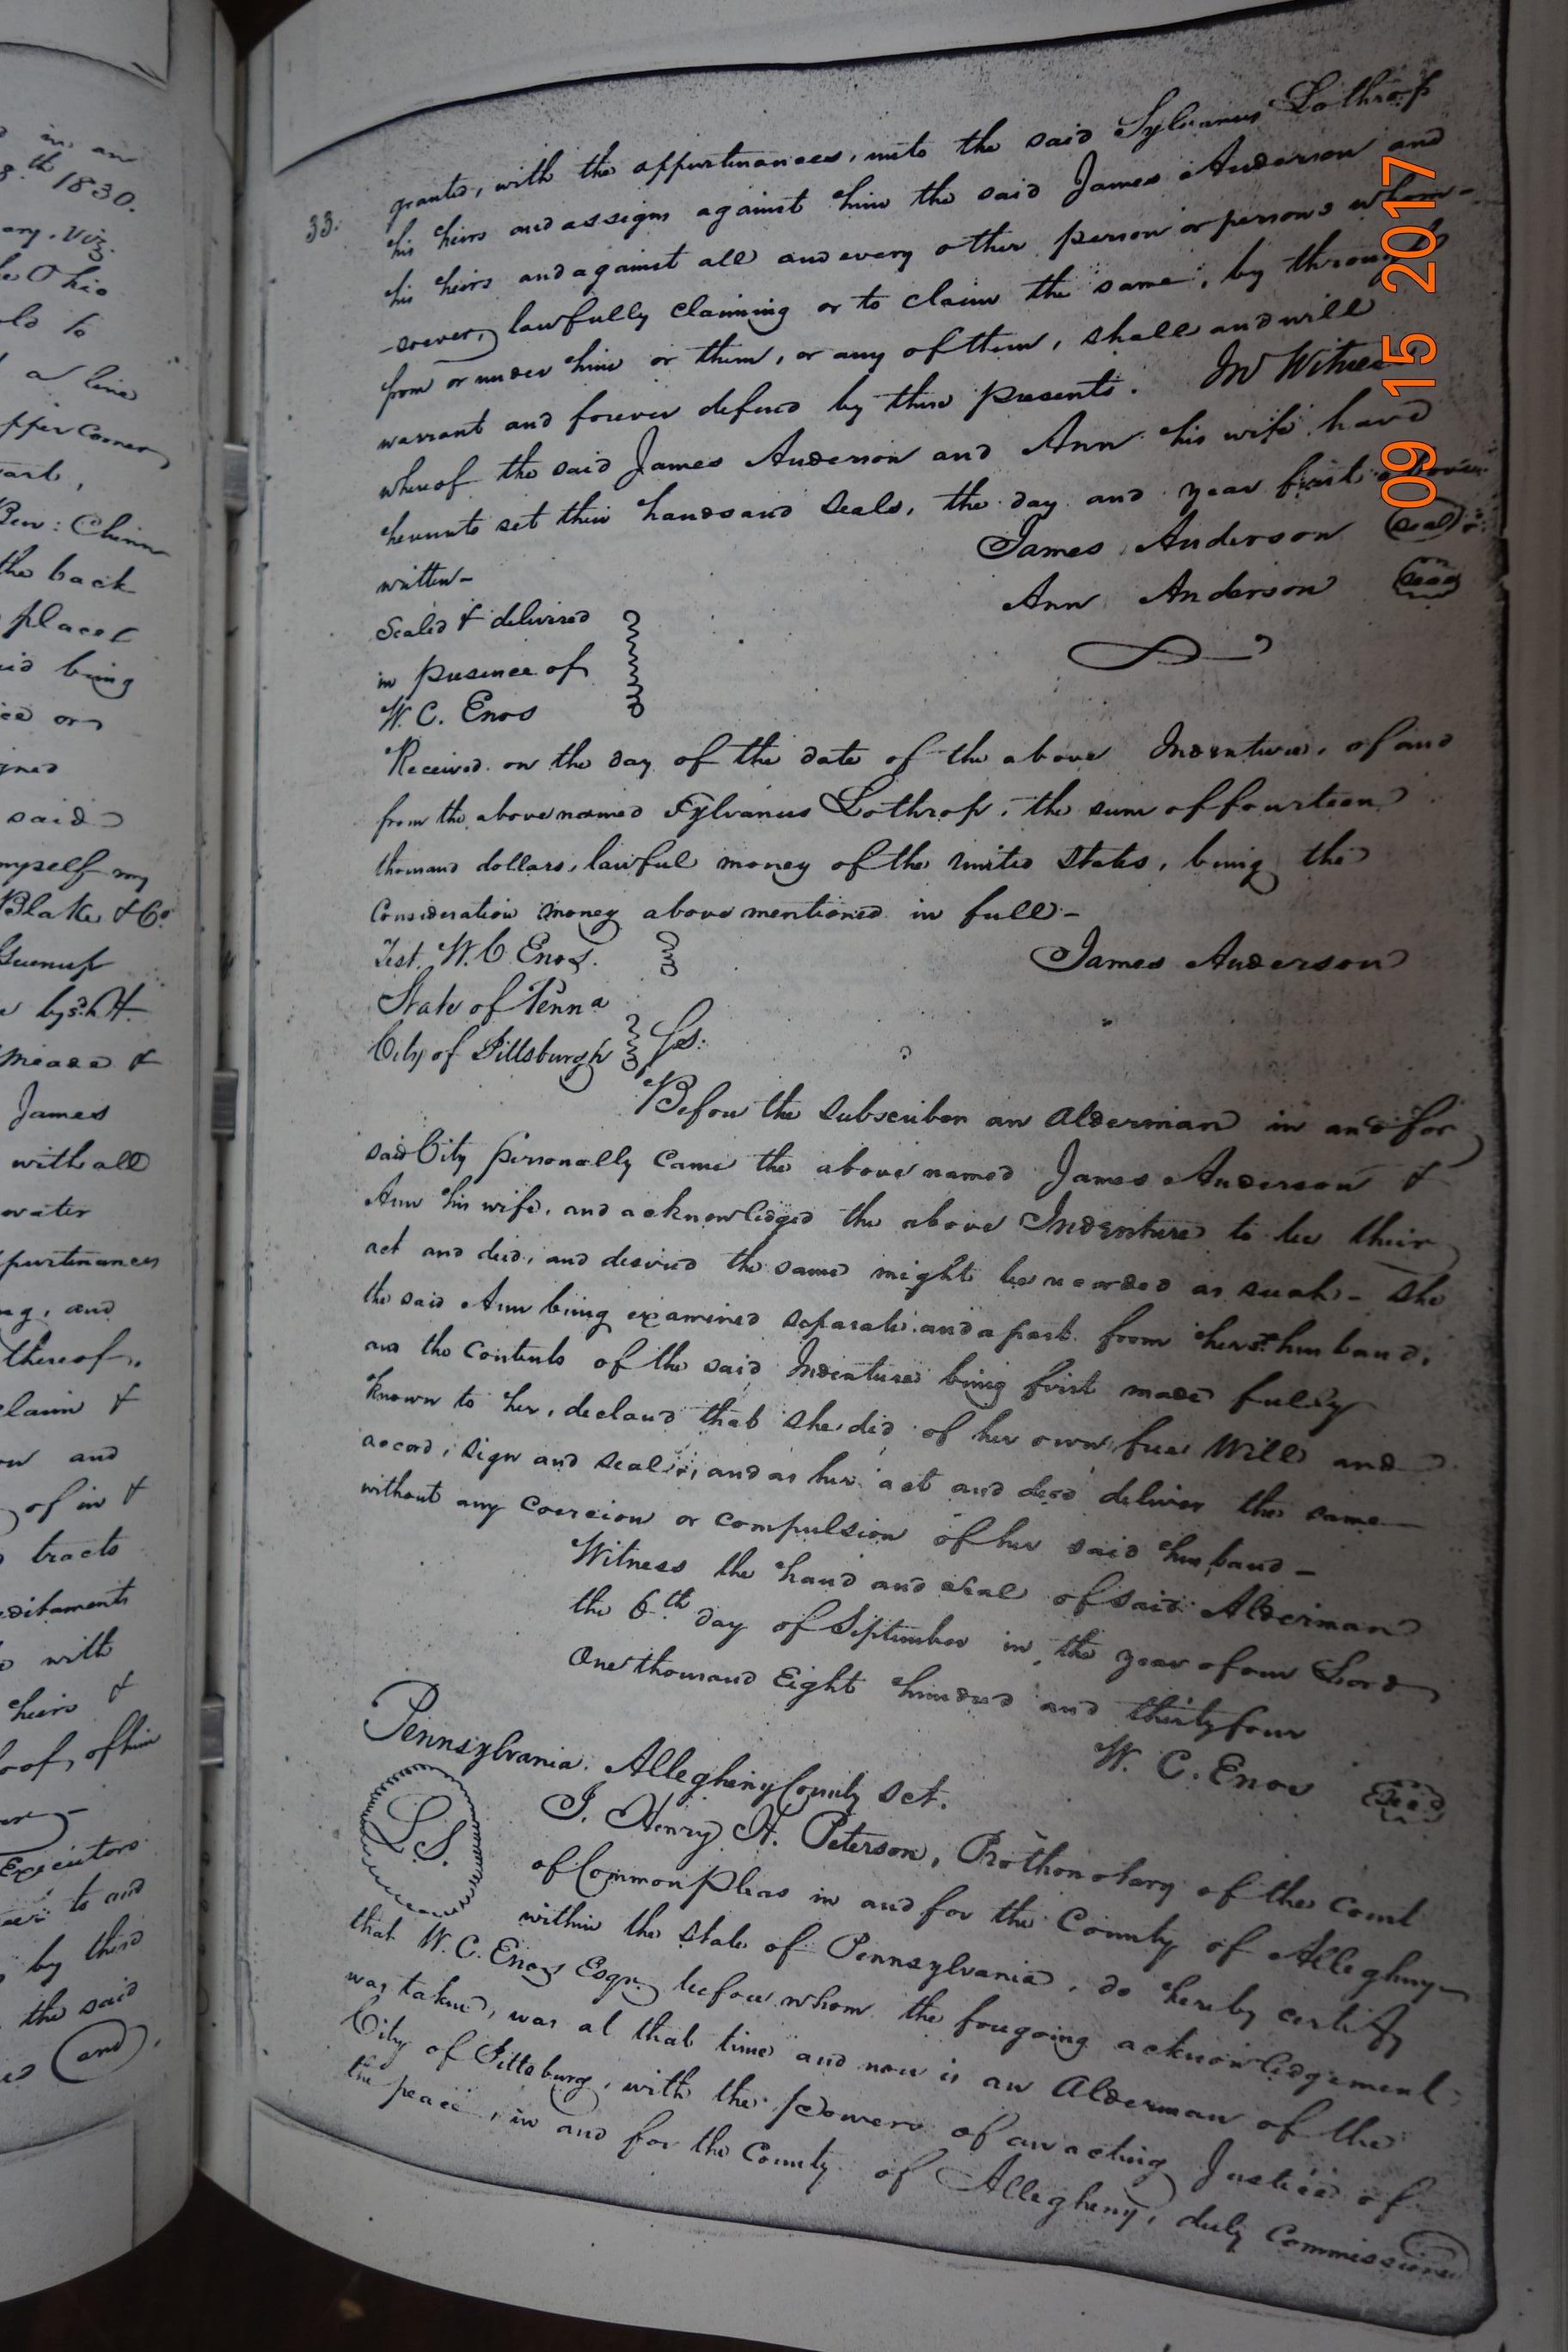 in, an
8.th 1830.
any. Viz.
the Ohio
old to
a line
upper corner
part,
Ben: Chinn
the back
place &
said being
said
myself my
Blake & Co.
Greenup
James
with all
water
appurtenances
and
thereof.
claim &
and
of in &
tracts
with
heirs &
of him
Executors
to and
by these
the said
(and)
33.
granted, with the appurtenances, unto the said Sylvanus Lothrop
his heirs and assigns against him the said James Anderson and
his heirs and against all and every other person or persons whom-
-soever, lawfully claiming or to claim the same, by through
from or under him or them, or any of them, shall and will
warrant and forever defend by these presents. In Witness
whereof the said James Anderson and Ann his wife have
hereunto set their hands and seals, the day and year first above
written-
James Anderson (seal)
Ann Anderson (seal)
Sealed & delivered
in presence of
W. C. Enos
Received on the day of the date of the above Indenture, of and
from the above named Sylvanus Lothrop, the sum of fourteen
thousand dollars, lawful money of the united States, being the
Consideration money above mentioned in full-
Test. W. C. Enos.
James Anderson
State of Penna
City of Pittsburgh Ss:
Before the subscriber an Alderman in and for
said City personally came the above named James Anderson &
Ann his wife, and acknowledged the above Indenture to be their
act and deed, and desired the same might be recorded as such- She
the said Ann being examined separate and apart from her sd. husband,
and the Contents of the said Indenture being first made fully
known to her, declared that she did of her own free Will and
accord, sign and seal, and as her act and deed deliver the same
without any coercion or compulsion of her said husband-
Witness the hand and seal of said Alderman
the 6th day of September in the year of our Lord
One thousand Eight hundred and thirty four
W. C. Enos (Seal)
Pennsylvania. Allegheny County Sct.
L.S.
I. Henry H. Peterson, Prothonotary of the Court
of Common Pleas in and for the County of Allegheny
within the State of Pennsylvania, do hereby certify
that W. C. Enos Esqr. before whom the foregoing acknowledgement
was taken, was at that time and now is an Alderman of the
City of Pittsburg, with the powers of an acting Justice of
the peace, in and for the County of Allegheny, duly Commissioned
09 15 2017